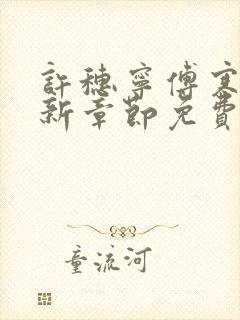 許穗寧傅寒
新章節免費
童流河